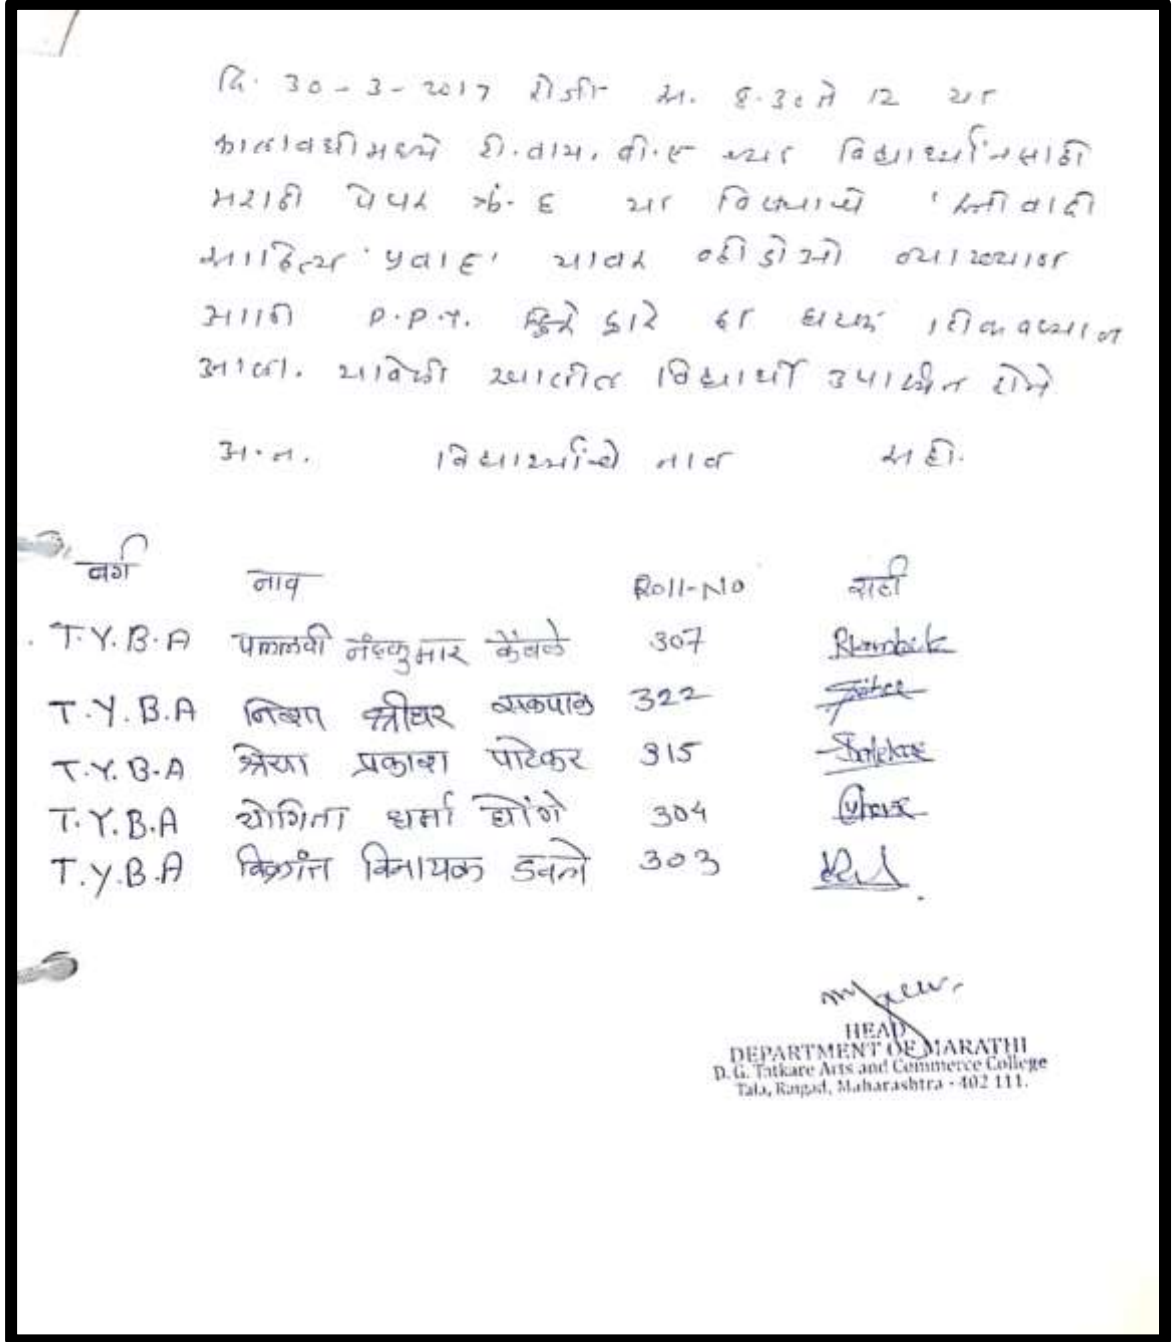 दि. 30-3-2017 रोजी स. 8.30 ते 12 या
कालावधीमध्ये टी.वाय. बी.ए च्या विद्यार्थ्यांनसाठी
मराठी पेपर क्रं. ६ या विषयाचे 'स्त्रीवादी
साहित्य प्रवाह' यावर व्हीडीओ व्याख्यान
आणि P.P.T. द्वारे हा घटक शिकवण्यात
आला. यावेळी खालील विद्यार्थी उपस्थित होते
अ.न. विद्यार्थ्यांचे नाव सही.
वर्ग नाव Roll-No सही
T.Y.B.A पल्लवी नंदकुमार केंबळे 307
T.Y.B.A निशा श्रीधर सकपाळ 322
T.Y.B-A श्रेया प्रकाश पाटेकर 315
T.Y.B.A योगिता धर्मा घोंगे 304
T.Y.B.A विक्रांत विनायक डवले 303
HEAD
DEPARTMENT OF MARATHI
D. G. Tatkare Arts and Commerce College
Tala, Raigad, Maharashtra - 402 111.